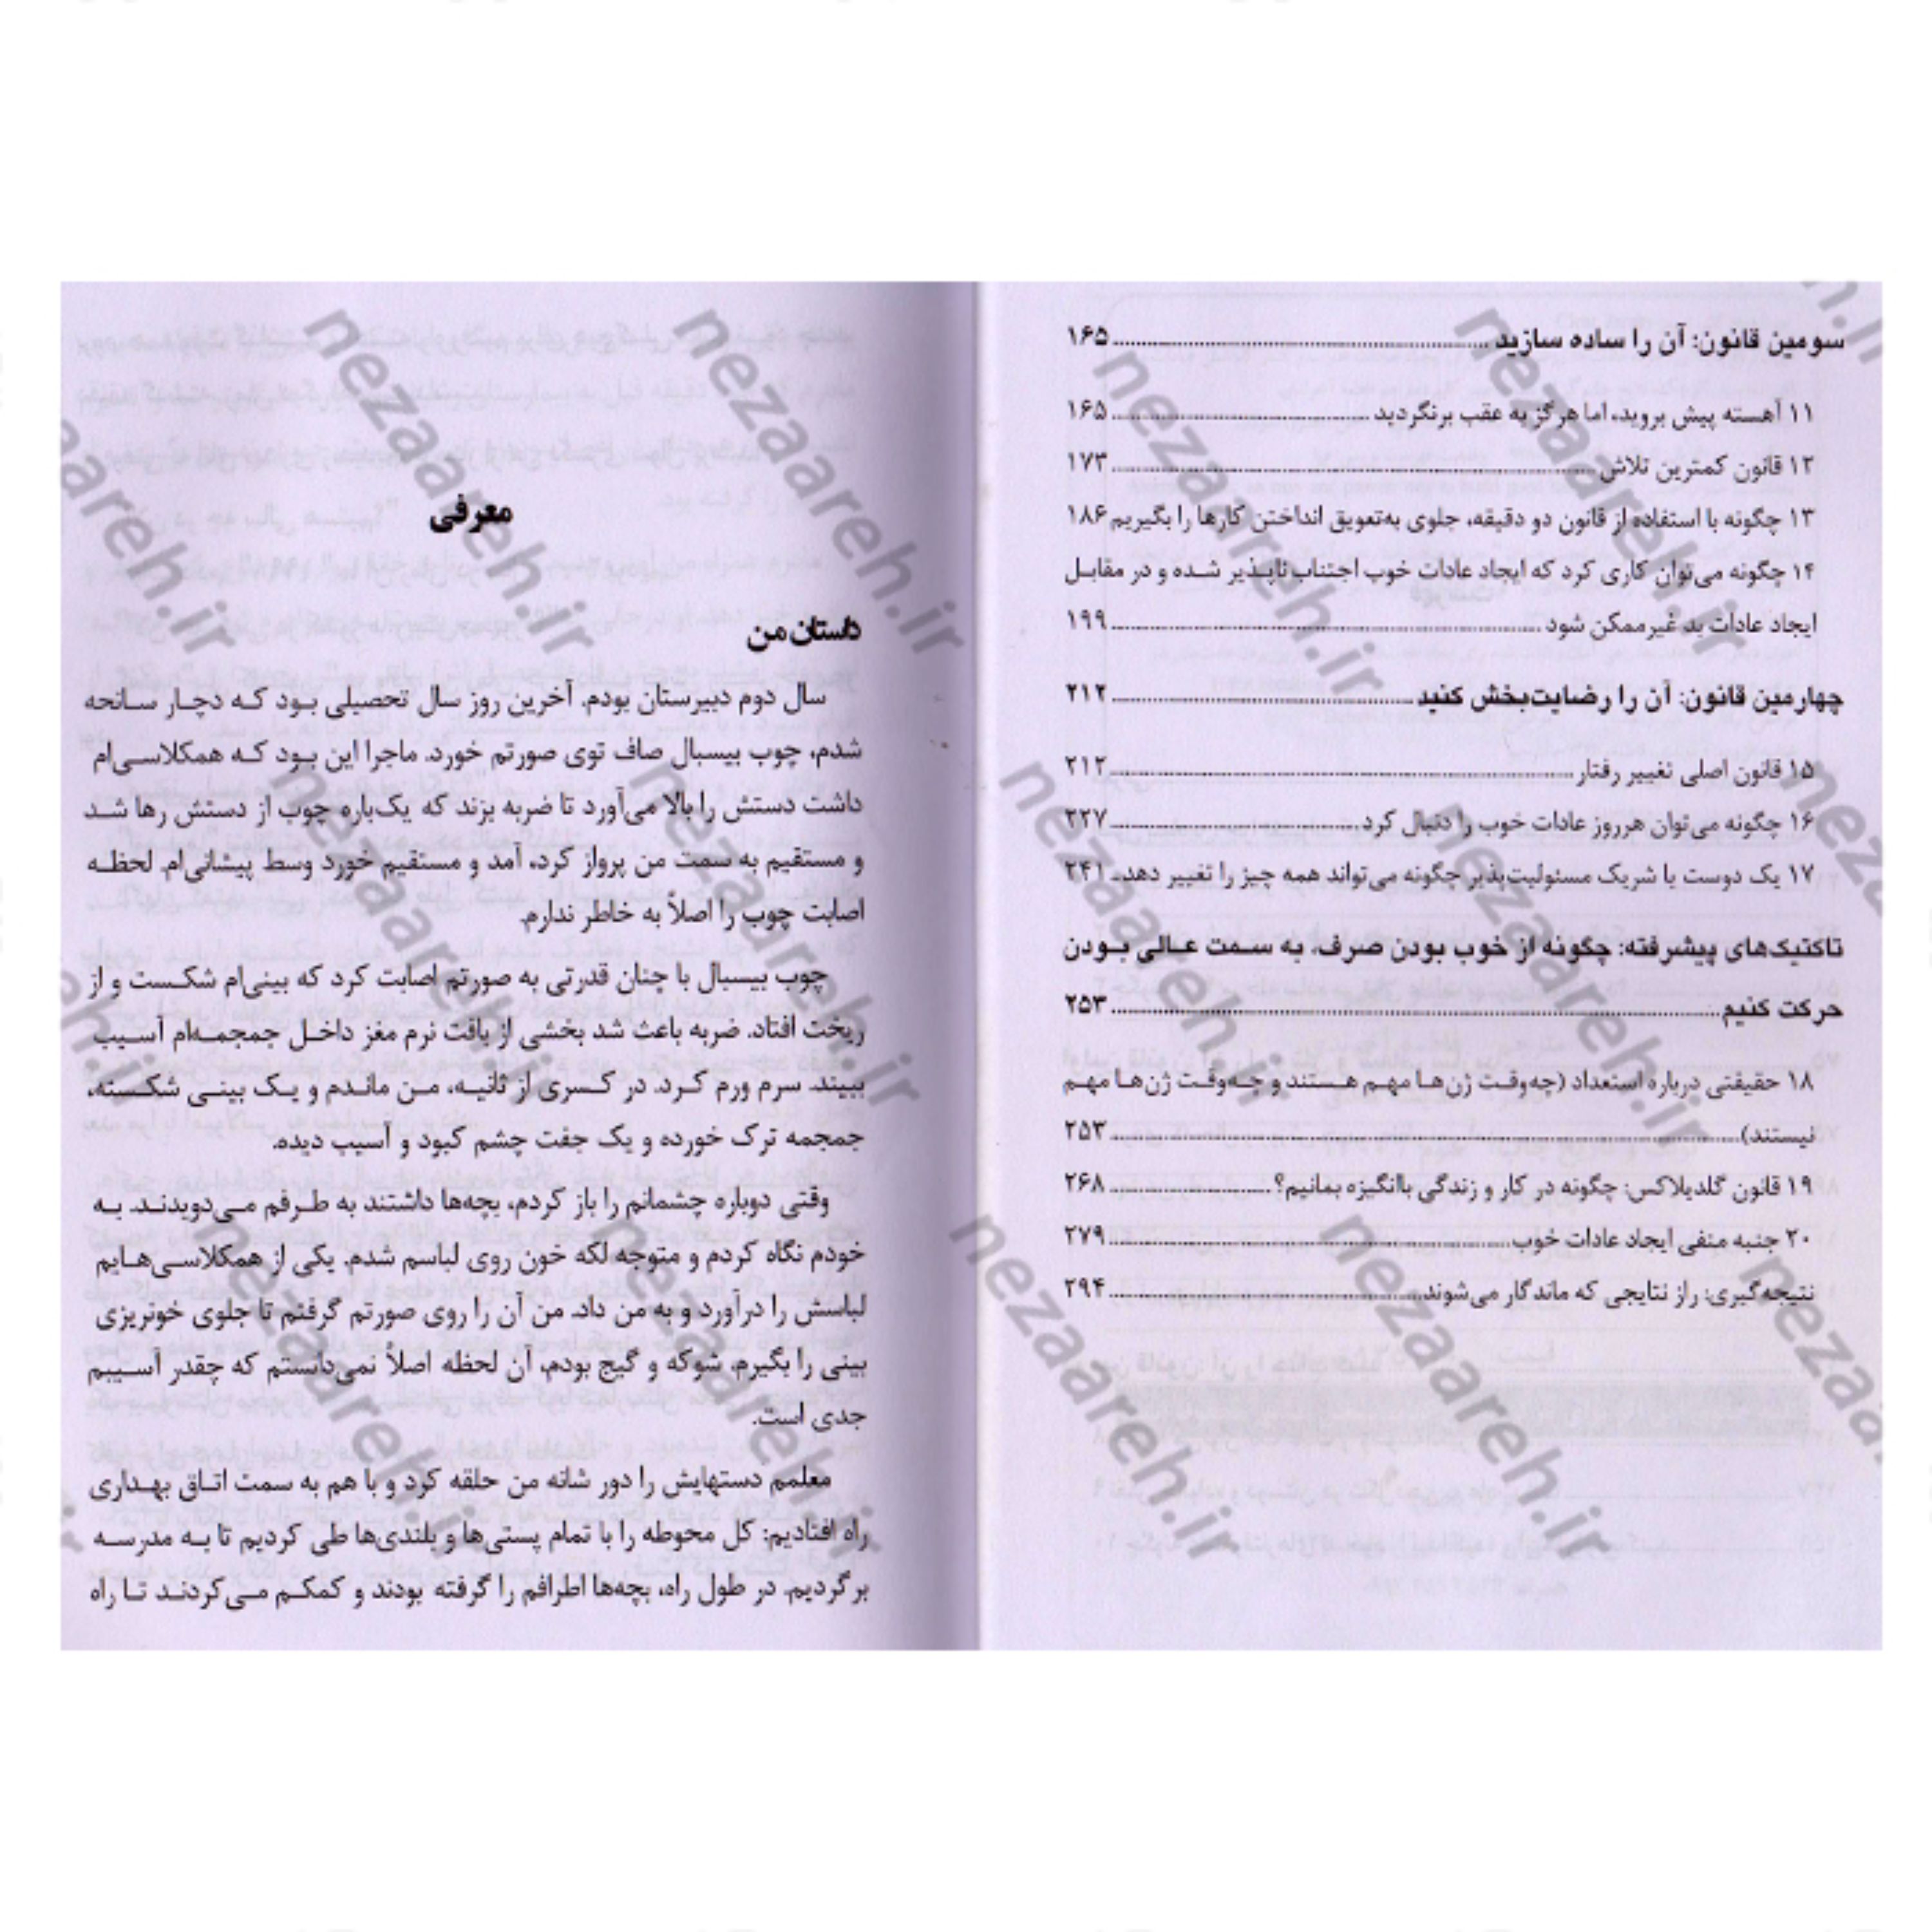 سومین قانون: آن را ساده سازید ........ ۱۶۵
۱۱ آهسته پیش بروید، اما هرگز به عقب برنگردید ........ ۱۶۵
۱۲ قانون کمترین تلاش ........ ۱۷۳
۱۳ چگونه با استفاده از قانون دو دقیقه، جلوی به‌تعویق انداختن کارها را بگیریم ۱۸۶
۱۴ چگونه می‌توان کاری کرد که ایجاد عادات خوب اجتناب ناپذیر شده و در مقابل
ایجاد عادات بد غیرممکن شود ........ ۱۹۹
چهارمین قانون: آن را رضایت‌بخش کنید ........ ۲۱۲
۱۵ قانون اصلی تغییر رفتار ........ ۲۱۲
۱۶ چگونه می‌توان هرروز عادات خوب را دنبال کرد ........ ۲۲۷
۱۷ یک دوست یا شریک مسئولیت‌پذیر چگونه می‌تواند همه چیز را تغییر دهد .. ۲۴۱
تاکتیک‌های پیشرفته: چگونه از خوب بودن صرف، به سمت عالی بودن
حرکت کنیم ........ ۲۵۳
۱۸ حقیقتی درباره استعداد (چه‌وقت ژن‌ها مهم هستند و چه‌وقت ژن‌ها مهم
نیستند) ........ ۲۵۳
۱۹ قانون گلدیلاکس: چگونه در کار و زندگی باانگیزه بمانیم؟ ........ ۲۶۸
۲۰ جنبه منفی ایجاد عادات خوب ........ ۲۷۹
نتیجه‌گیری: راز نتایجی که ماندگار می‌شوند ........ ۲۹۴
معرفی
داستان من
سال دوم دبیرستان بودم. آخرین روز سال تحصیلی بود که دچار سانحه
شدم، چوب بیسبال صاف توی صورتم خورد. ماجرا این بود که همکلاسی‌ام
داشت دستش را بالا می‌آورد تا ضربه بزند که یک‌باره چوب از دستش رها شد
و مستقیم به سمت من پرواز کرد، آمد و مستقیم خورد وسط پیشانی‌ام. لحظه
اصابت چوب را اصلاً به خاطر ندارم.
چوب بیسبال با چنان قدرتی به صورتم اصابت کرد که بینی‌ام شکست و از
ریخت افتاد. ضربه باعث شد بخشی از بافت نرم مغز داخل جمجمه‌ام آسیب
ببیند. سرم ورم کرد. در کسری از ثانیه، من ماندم و یک بینی شکسته،
جمجمه ترک خورده و یک جفت چشم کبود و آسیب دیده.
وقتی دوباره چشمانم را باز کردم، بچه‌ها داشتند به طرفم می‌دویدند. به
خودم نگاه کردم و متوجه لکه خون روی لباسم شدم. یکی از همکلاسی‌هایم
لباسش را درآورد و به من داد. من آن را روی صورتم گرفتم تا جلوی خونریزی
بینی را بگیرم. شوکه و گیج بودم، آن لحظه اصلاً نمی‌دانستم که چقدر آسیبم
جدی است.
معلمم دستهایش را دور شانه من حلقه کرد و با هم به سمت اتاق بهداری
راه افتادیم: کل محوطه را با تمام پستی‌ها و بلندی‌ها طی کردیم تا به مدرسه
برگردیم. در طول راه، بچه‌ها اطرافم را گرفته بودند و کمکم می‌کردند تا راه
nezaareh.ir